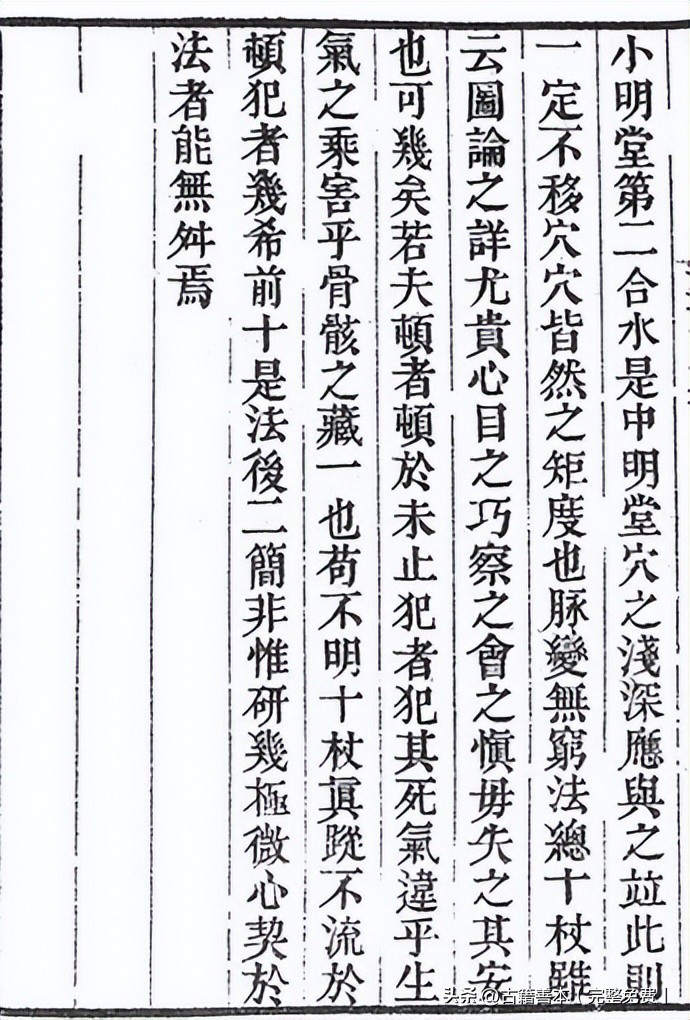 小明堂第二合水是中明堂穴之淺深應與之竝此則
一定不移穴穴皆然之矩度也脉變無窮法總十杖雖
云圖論之詳尤貴心目之巧察之會之慎毋失之其安
也可幾矣若夫頓者頓於未止犯者犯其死氣違乎生
氣之乘害乎骨骸之藏一也苟不明十杖眞蹤不流於
頓犯者幾希前十是法後二簡非惟研幾極微心契於
法者能無舛焉
头条 @古籍善本（完整免费）